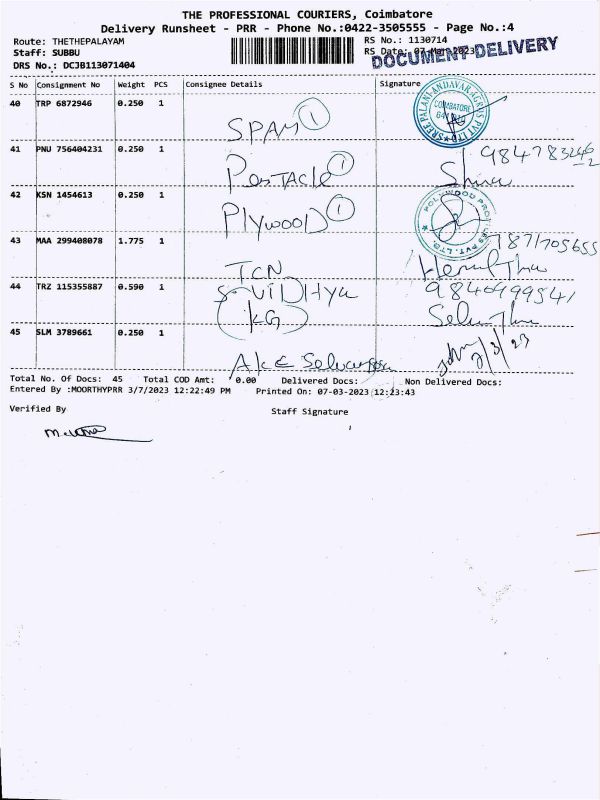 THE PROFESSIONAL COURIERS, Coimbatore
Delivery Runsheet - PRR - Phone No.:0422-3505555 - Page No.:4
Route: THETHEPALAYAM
RS No.: 1130714
Staff: SUBBU
RS Date: 07-Mar-2023
DOCUMENT DELIVERY
DRS No.: DCJB113071404
S No Consignment No Weight PCS Consignee Details Signature
40 TRP 6872946 0.250 1
SPAM 1
COIMBATORE
41 PNU 756404231 0.250 1
PENTACLE 1
Shiva
42 KSN 1454613 0.250 1
PLYWOOD 1
43 MAA 299408078 1.775 1
TCN
7871705655
44 TRZ 115355887 0.590 1
9840499541
(KG)
45 SLM 3789661 0.250 1
Total No. Of Docs: 45 Total COD Amt: 0.00 Delivered Docs: Non Delivered Docs:
Entered By :MOORTHYPRR 3/7/2023 12:22:49 PM Printed On: 07-03-2023 12:23:43
Verified By
Staff Signature